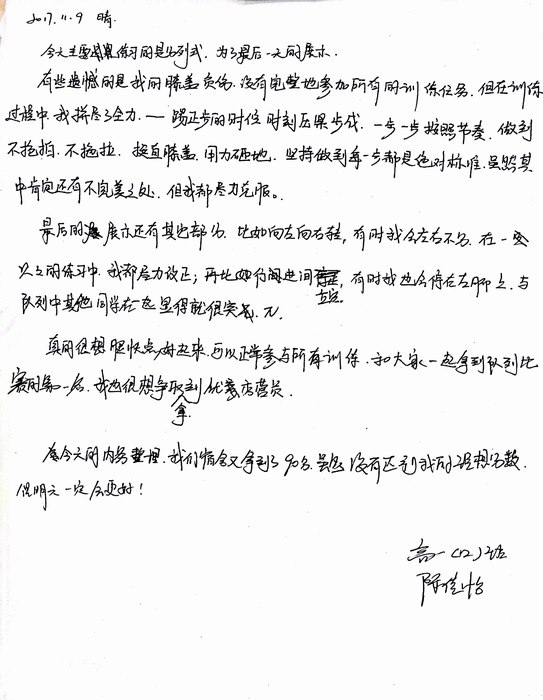 2017.11.9 晴
今天主要练习的是分列式，为了最后一天的展示
有些遗憾的是我的膝盖负伤，没有完整地参加所有的训练任务，但在训练
过程中，我拼尽了全力，— 踢正步的时候时刻压果步伐，一步一步按照节奏，做到
不抢拍，不拖拉，挺直膝盖，用力砸地，坚持做到每一步都是绝对标准，虽然其
中肯定还有不完美之处，但我都尽力克服。
最后的展示还有其它部分，比如向左向右转，有时我会左右不分，在一些
以之的练习中，我都尽力改正；再比如行进间立定，有时我也会停在左脚上，与
队列中其他同学在一起显得就很突兀
真的很想腿快点好起来，可以正常参与所有训练，和大家一起拿到队列比
赛的第一名，我也很想争取拿到优秀营员
在今天的内务整理，我们宿舍又拿到了90分，虽然没有达到我的理想分数，
但明天一定会更好！
高一(12)班
陈佳怡